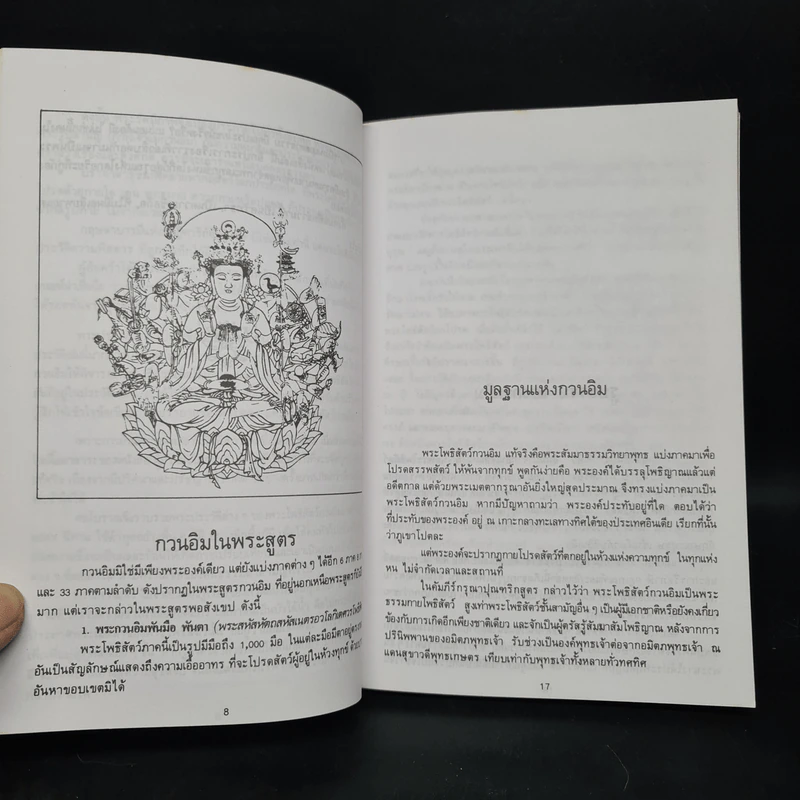 กวนอิมในพระสูตร
กวนอิมมิใช่มีเพียงพระองค์เดียว แต่ยังแบ่งภาคต่าง ๆ ได้อีก 6 ภาค
และ 33 ภาคตามลำดับ ดังปรากฏในพระสูตรกวนอิม ที่อยู่นอกเหนือพระสูตรก็ยังมี
มาก แต่เราจะกล่าวในพระสูตรพอสังเขป ดังนี้
1. พระกวนอิมพันมือ พันตา (พระสหัสหัตถสหัสเนตรอวโลกิเตศวรโพธิสัตว์
พระโพธิสัตว์ภาคนี้เป็นรูปมีมือถึง 1,000 มือ ในแต่ละมือมีตาอยู่ตรง
อันเป็นสัญลักษณ์แสดงถึงความเอื้ออาทร ที่จะโปรดสัตว์ผู้อยู่ในห้วงทุกข์ ด้วย
อันหาขอบเขตมิได้
8
มูลฐานแห่งกวนอิม
พระโพธิสัตว์กวนอิม แท้จริงคือพระสัมมาธรรมวิทยาพุทธ แบ่งภาคมาเพื่อ
โปรดสรรพสัตว์ ให้พ้นจากทุกข์ พูดกันง่ายคือ พระองค์ได้บรรลุโพธิญาณแล้วแต่
อดีตกาล แต่ด้วยพระเมตตากรุณาอันยิ่งใหญ่สุดประมาณ จึงทรงแบ่งภาคมาเป็น
พระโพธิสัตว์กวนอิม หากมีปัญหาถามว่า พระองค์ประทับอยู่ที่ใด ตอบได้ว่า
ที่ประทับของพระองค์ อยู่ ณ เกาะกลางทะเลทางทิศใต้ของประเทศอินเดีย เรียกที่นั้น
ว่าภูเขาโปตละ
แต่พระองค์จะปรากฏกายโปรดสัตว์ที่ตกอยู่ในห้วงแห่งความทุกข์ ในทุกแห่ง
หน ไม่จำกัดเวลาและสถานที่
ในคัมภีร์กรุณาปุณฑริกสูตร กล่าวไว้ว่า พระโพธิสัตว์กวนอิมเป็นพระ
ธรรมกายโพธิสัตว์ สูงเท่าพระโพธิสัตว์ชั้นสามัญอื่น ๆ เป็นผู้มีเอกชาติหรือยังคงเกี่ยว
ข้องกับการเกิดอีกเพียงชาติเดียว และจักเป็นผู้ตรัสรู้สัมมาสัมโพธิญาณ หลังจากการ
ปรินิพพานของอมิตภพุทธเจ้า รับช่วงเป็นองค์พุทธเจ้าต่อจากอมิตภพุทธเจ้า ณ
แดนสุขาวดีพุทธเกษตร เทียบเท่ากับพุทธเจ้าทั้งหลายทั่วทศทิศ
17